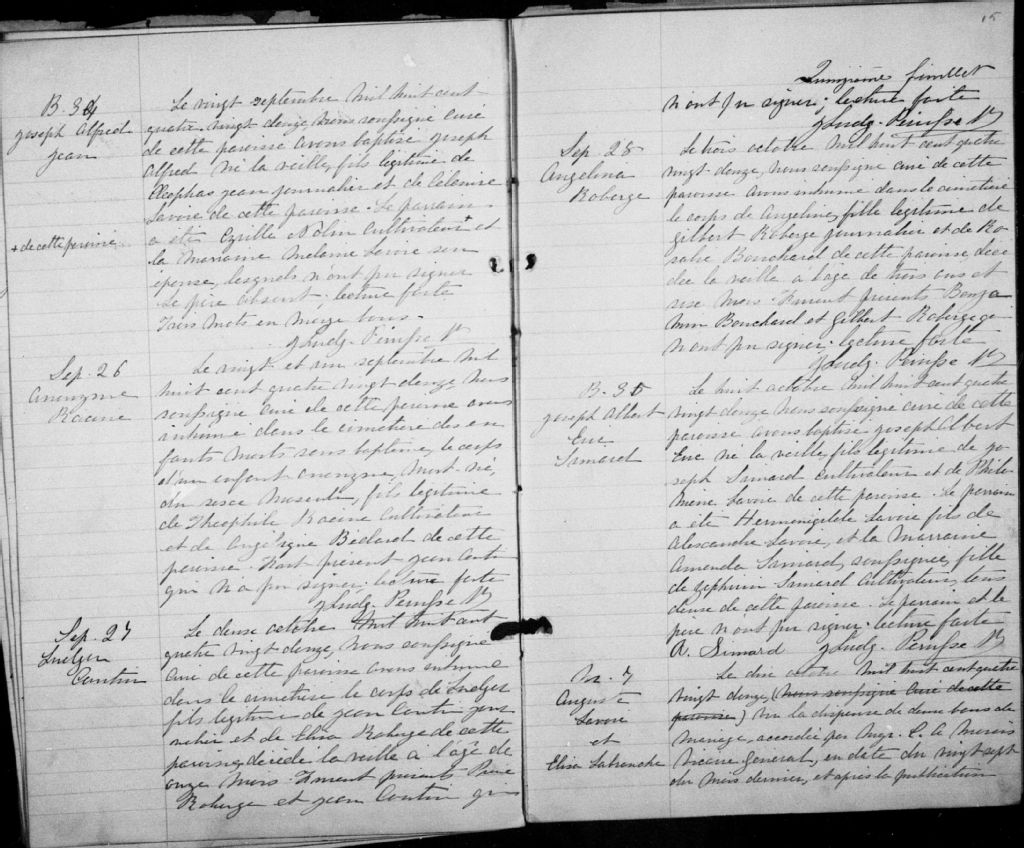 B. 34
Joseph Alfred
Jean
Le vingt septembre mil huit cent
quatre vingt douze, nous soussigné curé
de cette paroisse avons baptisé Joseph
Alfred né la veille, fils légitime de
Cléophas Jean journalier et de Célénire
Savoie de cette paroisse. Le parrain
a été Cyrille Nolin cultivateur + et
+ de cette paroisse
la marraine Mélanie Savoie son
épouse, lesquels n'ont pu signer
Le père absent. lecture faite
Trois mots en marge bons.
J Ludg. Ptre
Sep. 26
Anonyme
Racine
Le vingt et un septembre mil
huit cent quatre vingt douze nous
soussigné curé de cette paroisse avons
inhumé dans le cimetière des en
fants morts sans baptême, le corps
d'un enfant anonyme, mort-né,
du sexe masculin, fils légitime
de Théophile Racine cultivateur
et de Angélique Bedard de cette
paroisse. Etait présent Jean Cantin
qui n'a pu signer. lecture faite
J Ludg. Ptre
Sep. 27
Ludger
Cantin
Le deux octobre mil huit cent
quatre vingt douze, nous soussigné
curé de cette paroisse avons inhumé
dans le cimetière le corps de Ludger
fils légitime de Jean Cantin jour
nalier et de Eliza Roberge de cette
paroisse, décédé la veille à l'âge de
onze mois. Furent présents
Roberge et Jean Cantin qui
15
Quinzième feuillet
n'ont pu signer; lecture faite
J Ludg. Ptre
Sep. 28
Angelina
Roberge
Le trois octobre mil huit cent quatre
vingt douze, nous soussigné curé de cette
paroisse avons inhumé dans le cimetière
le corps de Angelina, fille légitime de
Gilbert Roberge journalier et de Ro
salie Bouchard de cette paroisse, décé
dée la veille à l'âge de trois ans et
seize mois. Furent présents Benja
min Bouchard et Gilbert Roberge qui
n'ont pu signer. lecture faite
J Ludg. Ptre
B. 35
Joseph Albert
Simard
Le huit octobre mil huit cent quatre
vingt douze nous soussigné curé de cette
paroisse avons baptisé Joseph Albert
né la veille, fils légitime de Jo
seph Simard cultivateur et de Philo
mène Savoie de cette paroisse. Le parrain
a été Hermenigilde Savoie fils de
Alexandre Savoie, et la marraine
Amanda Simard, soussignée, fille
de Zephirin Simard cultivateur, tous
deux de cette paroisse. Le parrain et le
père n'ont pu signer. lecture faite
A. Simard J Ludg. Ptre
M. 7
Auguste
Savoie
et
Elisa Labranche
Le dix octobre mil huit cent quatre
vingt douze, (nous soussigné curé de cette
paroisse) Vu la dispense de deux bans de
mariage, accordée par Mgr. C. A. Marois
Vicaire Général, en date du vingt sept
du mois dernier, et après la publication